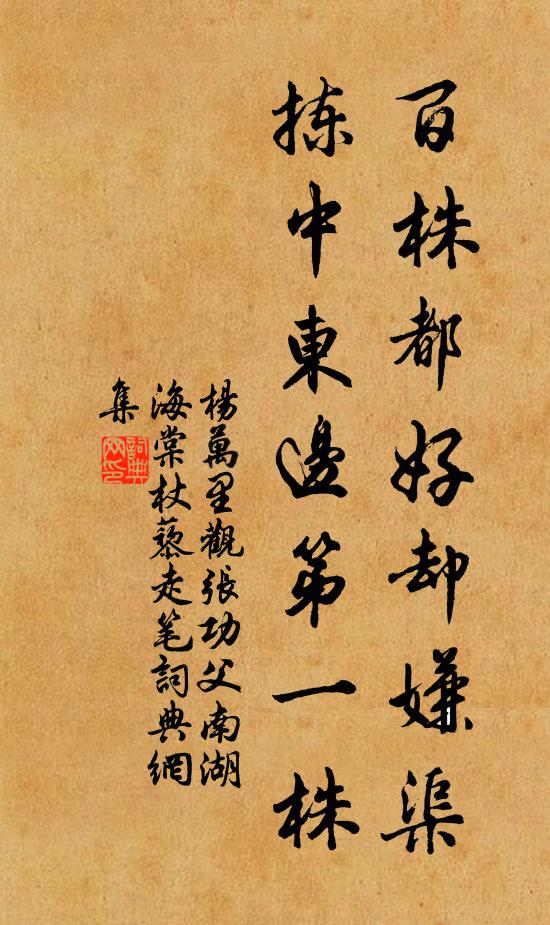 百株都好却嫌渠
拣中東邊第一株
楊萬里觀張功父南湖
海棠杖藜走笔詞典網
集
詞典
网印